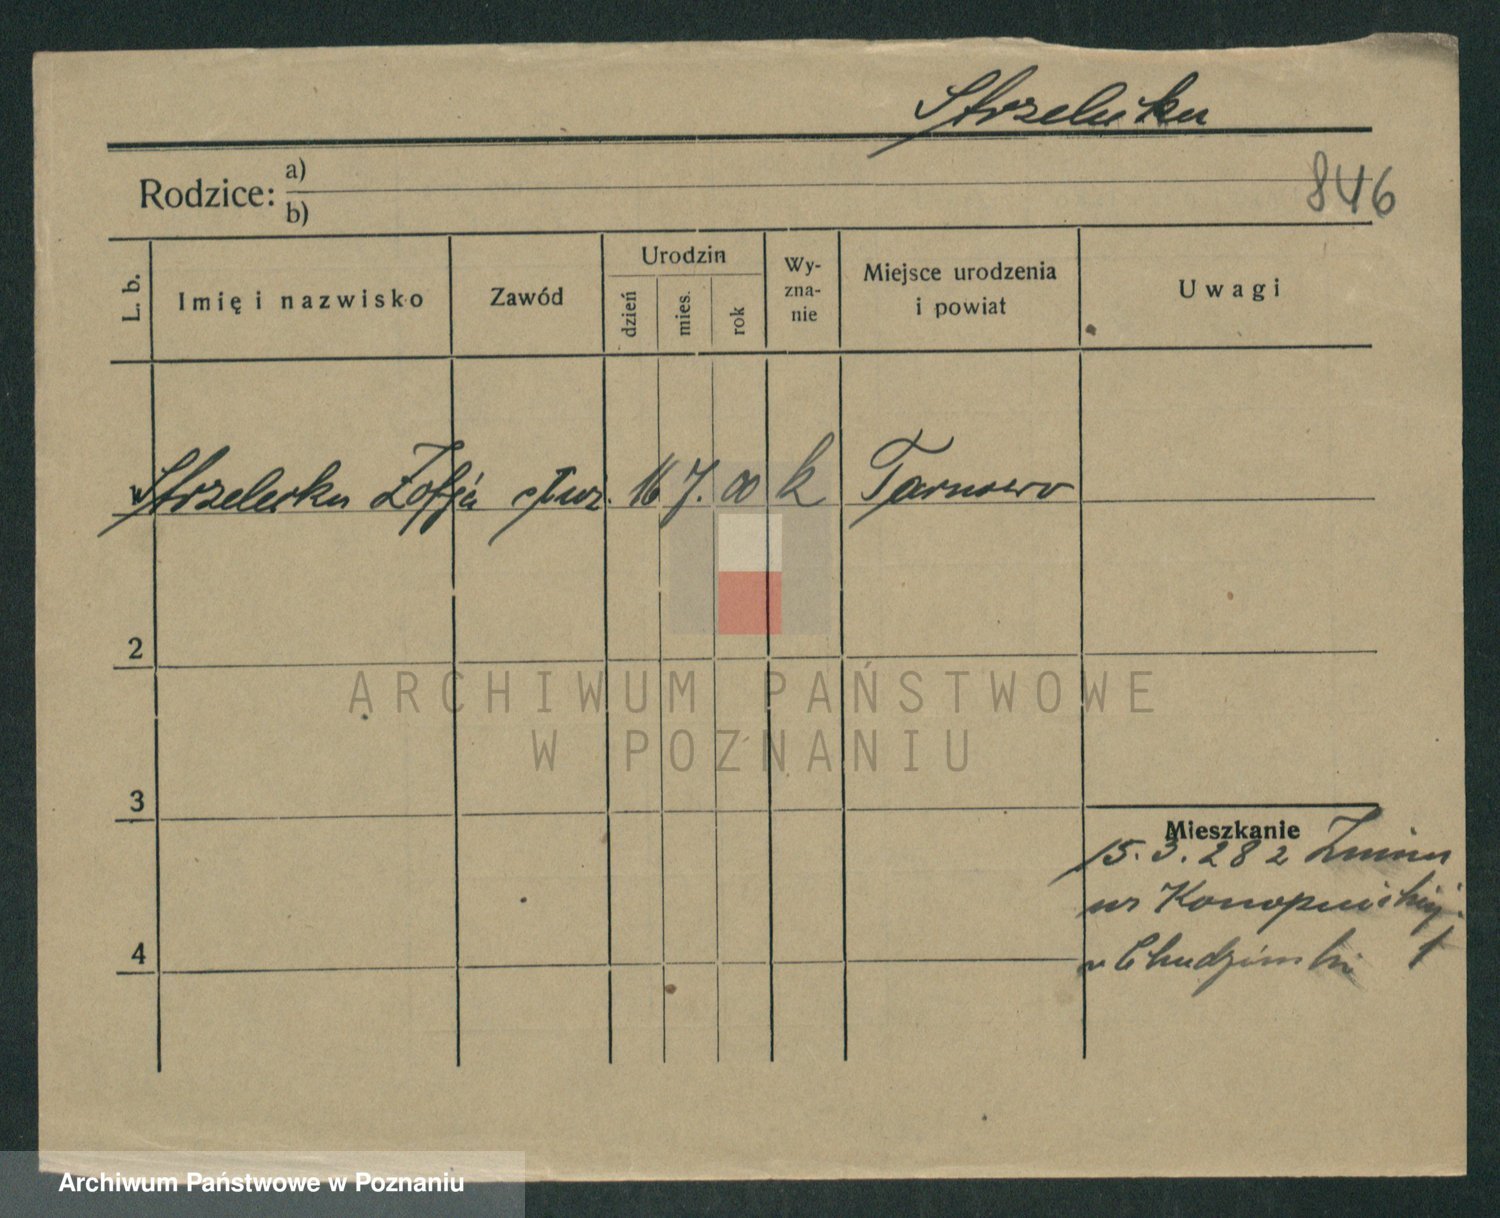 Strzelecka
Rodzice: a)
b)
846
L. b. Imię i nazwisko Zawód Urodzin dzień mies. rok Wy-zna-nie Miejsce urodzenia i powiat Uwagi
Strzelecka Zofja służ. 16 7. 00 k Tarnowo
2
3
4
Mieszkanie
15.3.28 z Żnina
Konopnickiej
Chudziński 1
ARCHIWUM PAŃSTWOWE
W POZNANIU
Archiwum Państwowe w Poznaniu